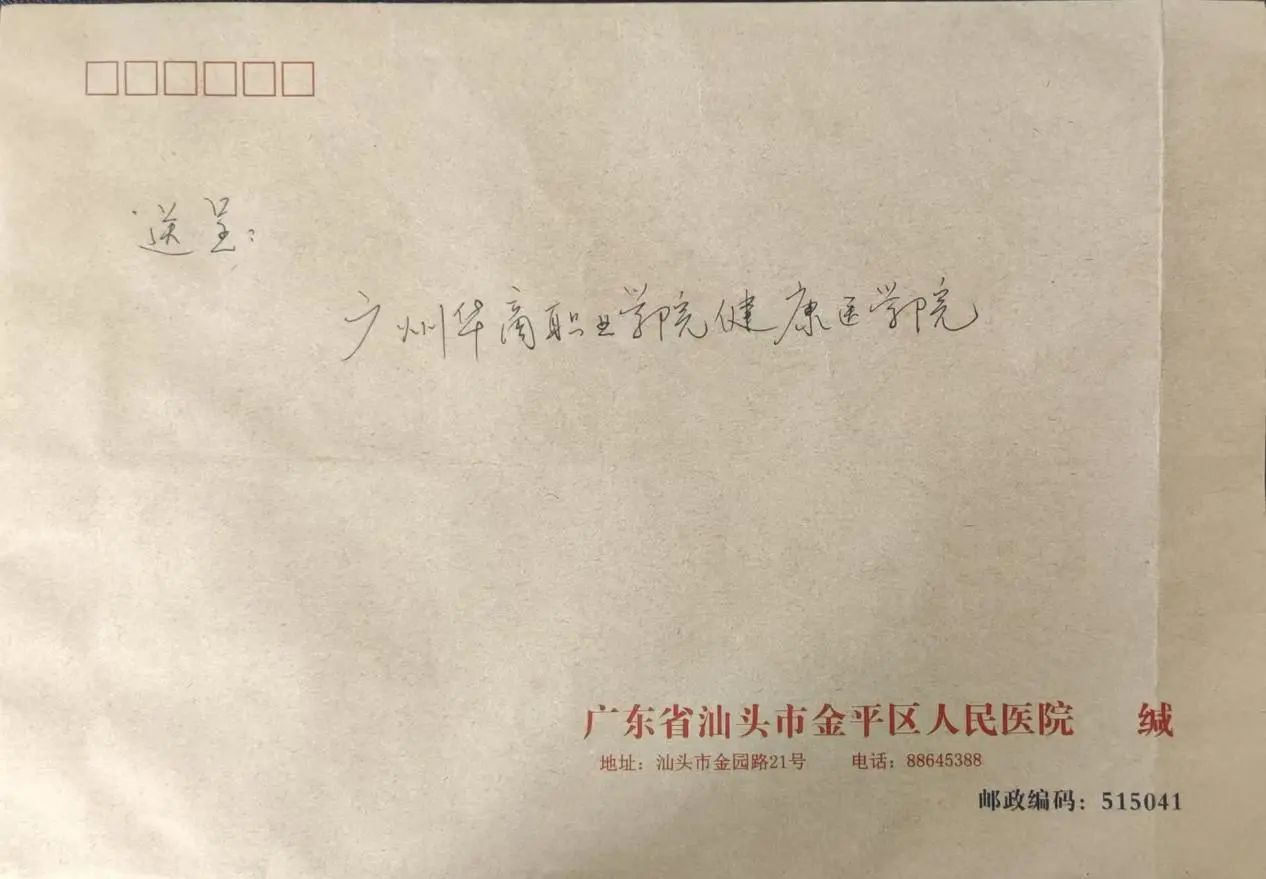 送呈:
广州华商职业学院健康医学院
广东省汕头市金平区人民医院 缄
地址：汕头市金园路21号 电话：88645388
邮政编码：515041